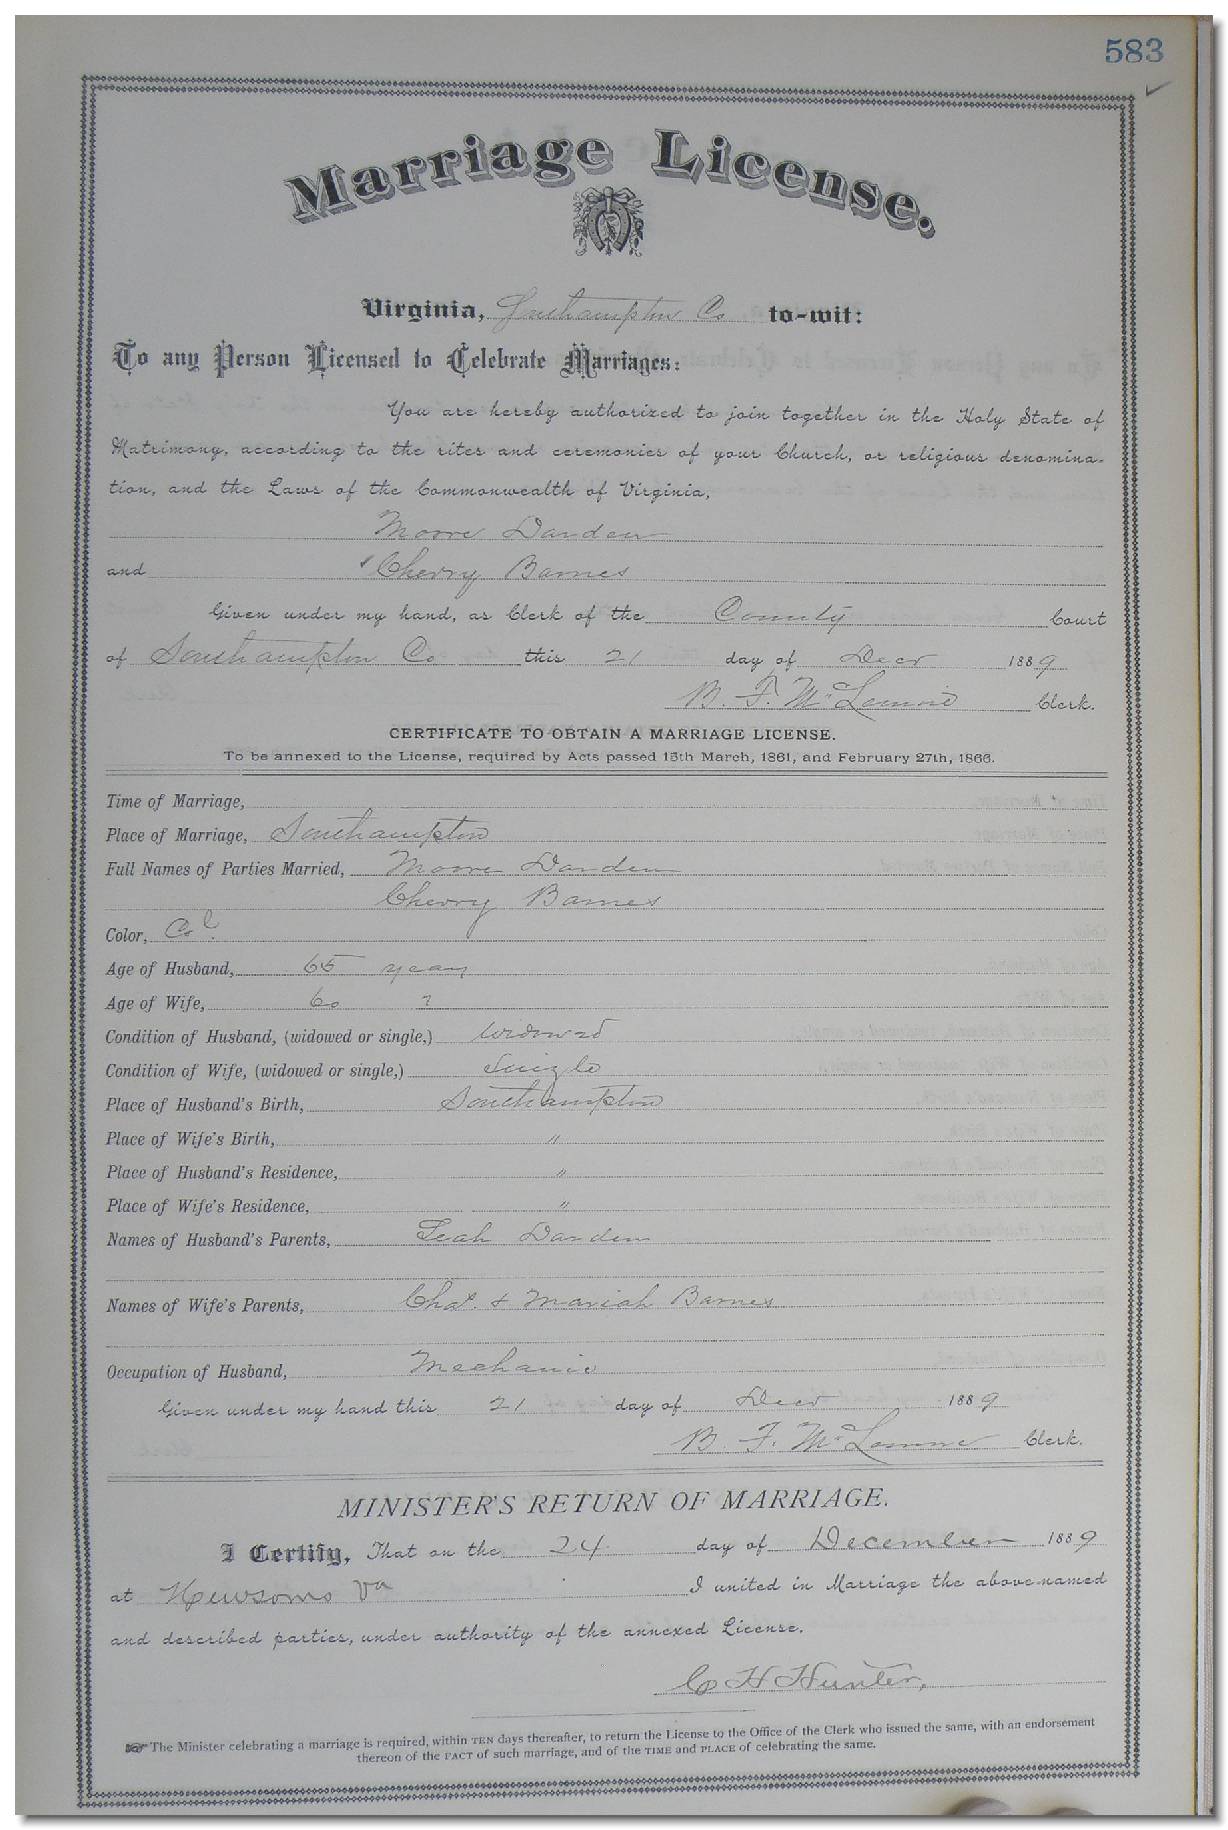 583
Marriage License.
Virginia, Southampton Co to-wit:
To any Person Licensed to Celebrate Marriages:
You are hereby authorized to join together in the Holy State of
Matrimony, according to the rites and ceremonies of your Church, or religious denomina-
tion, and the Laws of the Commonwealth of Virginia,
Moore Darden
and Cherry Barnes
Given under my hand, as Clerk of the County Court
of Southampton Co this 21 day of Decr 1889
B. F. McLemore Clerk.
CERTIFICATE TO OBTAIN A MARRIAGE LICENSE.
To be annexed to the License, required by Acts passed 15th March, 1861, and February 27th, 1866.
Time of Marriage,
Place of Marriage, Southampton
Full Names of Parties Married, Moore Darden
Cherry Barnes
Color, Cold.
Age of Husband, 65 years
Age of Wife, 60 "
Condition of Husband, (widowed or single,) widowed
Condition of Wife, (widowed or single,) single
Place of Husband's Birth, Southampton
Place of Wife's Birth, "
Place of Husband's Residence, "
Place of Wife's Residence, "
Names of Husband's Parents, Leah Darden
Names of Wife's Parents, Chas. & Mariah Barnes
Occupation of Husband, Mechanic
Given under my hand this 21 day of Decr 1889
B. F. McLemore Clerk.
MINISTER'S RETURN OF MARRIAGE.
I Certify, That on the 24 day of December 1889
at Newsoms Va I united in Marriage the above-named
and described parties, under authority of the annexed License.
C H Hunter,
☞ The Minister celebrating a marriage is required, within TEN days thereafter, to return the License to the Office of the Clerk who issued the same, with an endorsement
thereon of the FACT of such marriage, and of the TIME and PLACE of celebrating the same.